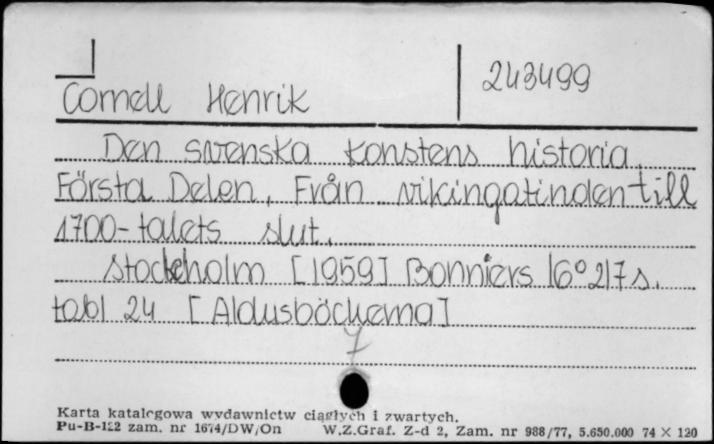 Cornell Henrik
243499
Den svenska konstens historia.
Första Delen. Från vikingatinden till
1700-talets slut.
Stockholm [1959] Bonniers 16° 217 s.
tabl 24 [Aldusböckerna]
7
Karta katalogowa wydawnictw ciągłych i zwartych.
Pu-B-122 zam. nr 1674/DW/On W.Z.Graf. Z-d 2, Zam. nr 988/77, 5.650.000 74 X 120